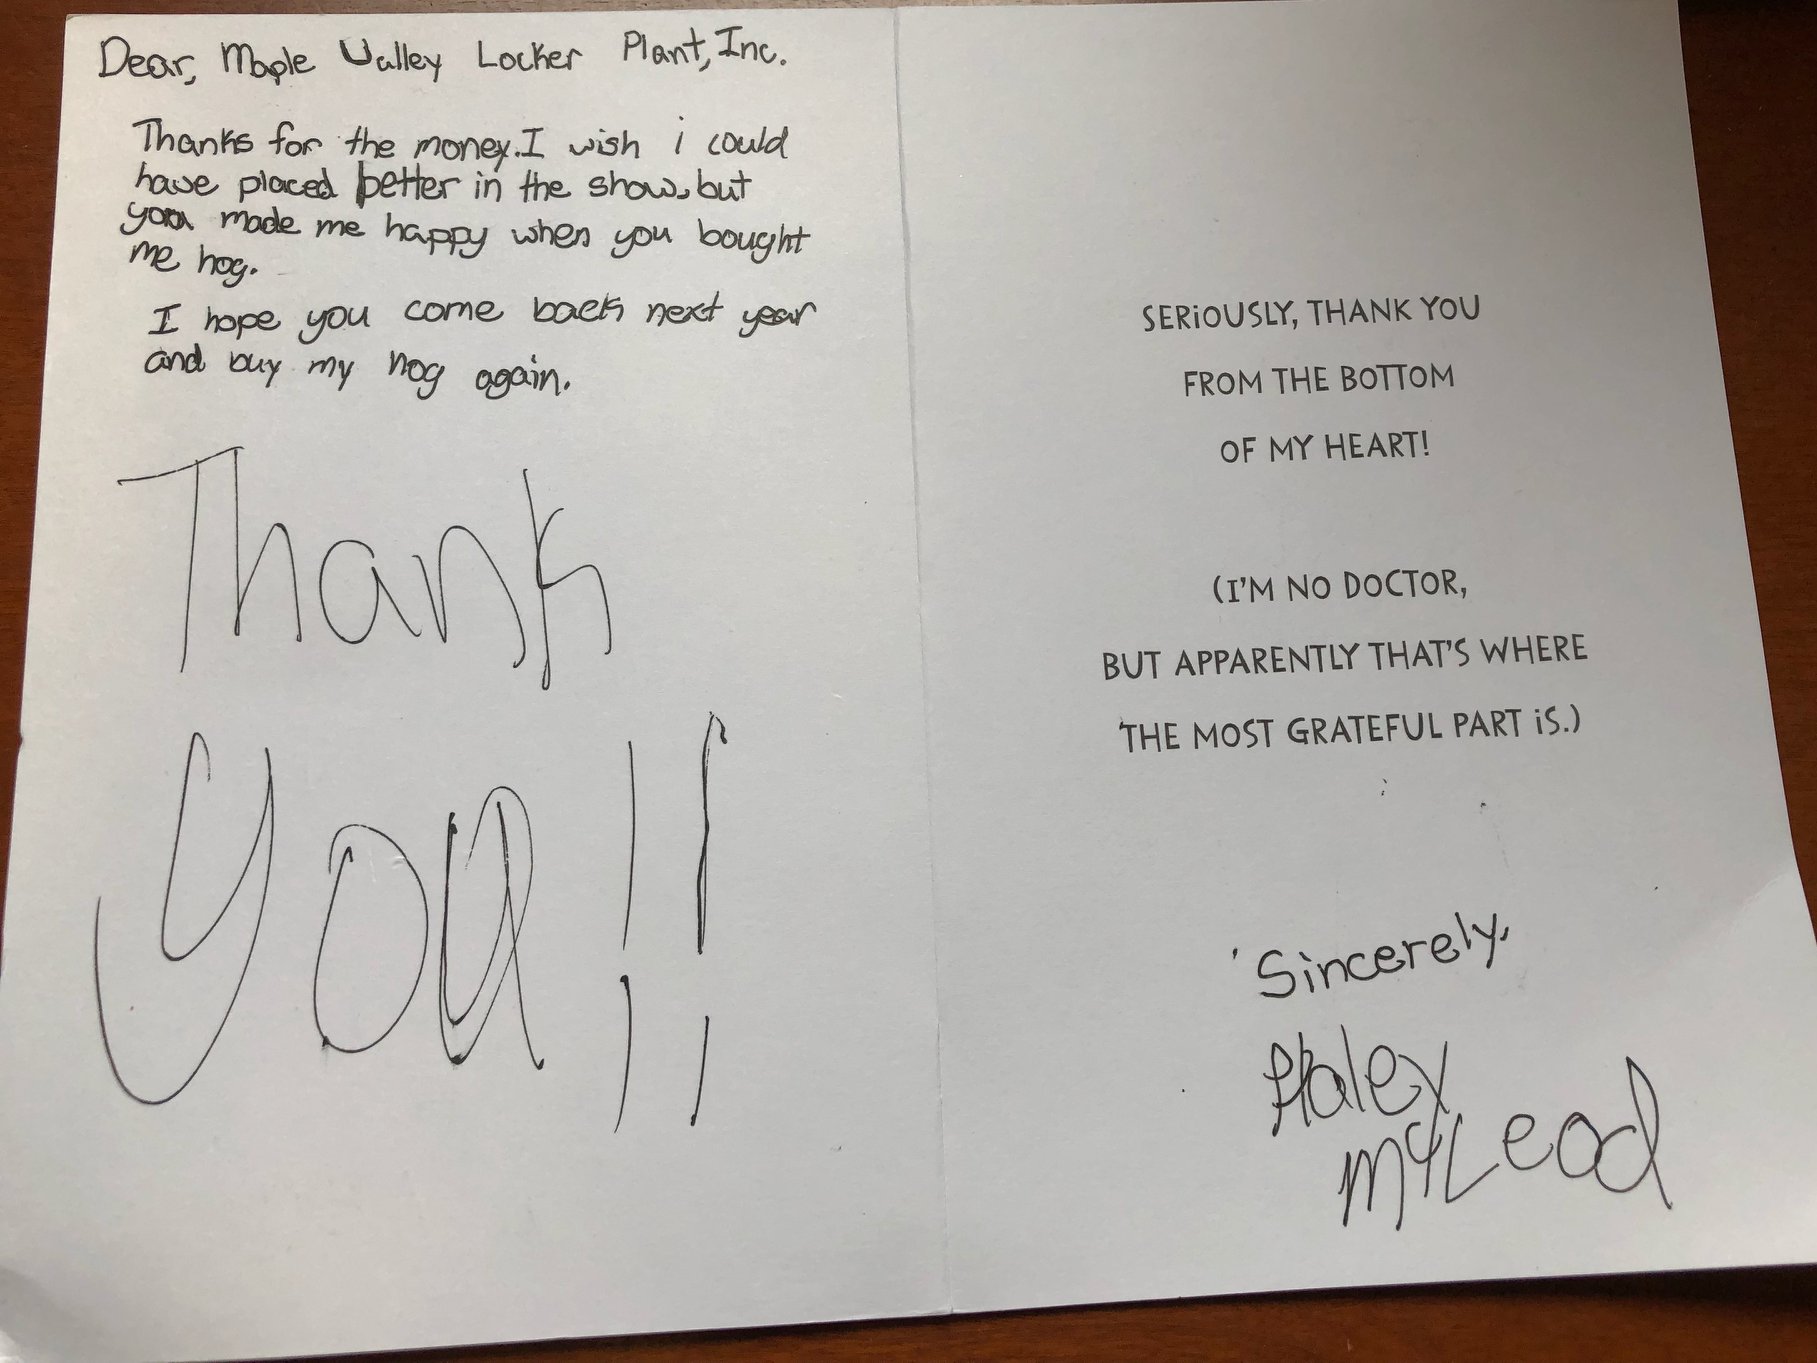 Dear, Maple Valley Locker Plant, Inc.
Thanks for the money. I wish i could
have placed better in the show, but
you made me happy when you bought
me hog.
I hope you come back next year
and buy my hog again.
Thank
you!!
SERiOUSLY, THANK YOU
FROM THE BOTTOM
OF MY HEART!
(I'M NO DOCTOR,
BUT APPARENTLY THAT'S WHERE
THE MOST GRATEFUL PART iS.)
Sincerely,
Haley
McLeod